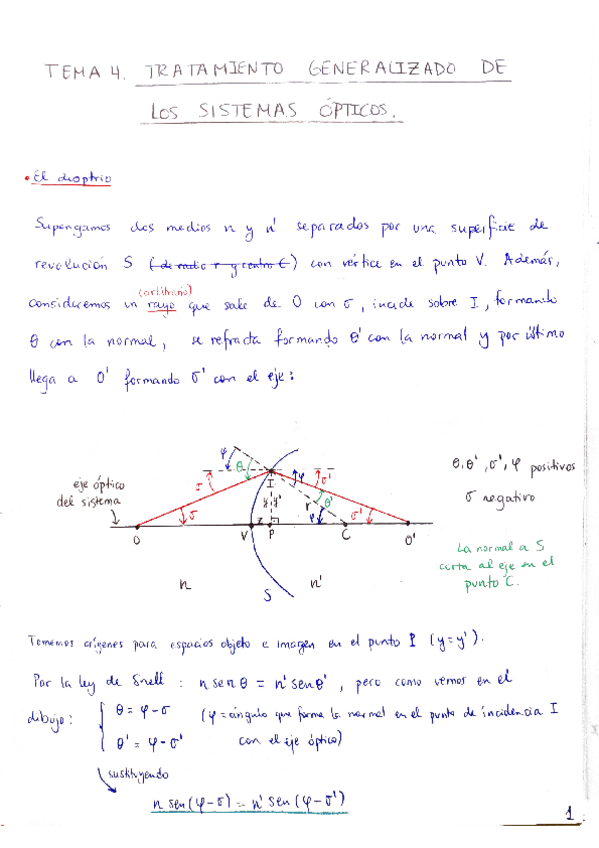 TEMA 4. TRATAMIENTO GENERALIZADO DE
LOS SISTEMAS ÓPTICOS.
• El dioptrio
Supongamos dos medios n y n' separados por una superficie de
revolución S (de radio r y centro C) con vértice en el punto V. Además,
(arbitrario)
consideremos un rayo que sale de O con σ, incide sobre I, formando
θ con la normal, se refracta formando θ' con la normal y por último
llega a O' formando σ' con el eje:
eje óptico
del sistema
φ
θ
σ
σ
I
φ
σ'
θ'
y
y'
r
φ
σ'
z
O
V
P
C
O'
n
n'
S
θ, θ', σ', φ positivos
σ negativo
La normal a S
corta al eje en el
punto C.
Tomemos orígenes para espacios objeto e imagen en el punto P (y=y').
Por la ley de Snell : n sen θ = n' sen θ' , pero como vemos en el
dibujo: { θ = φ-σ (φ=ángulo que forma la normal en el punto de incidencia I
θ' = φ-σ' con el eje óptico)
sustituyendo
n sen(φ-σ) = n' sen(φ-σ')
1